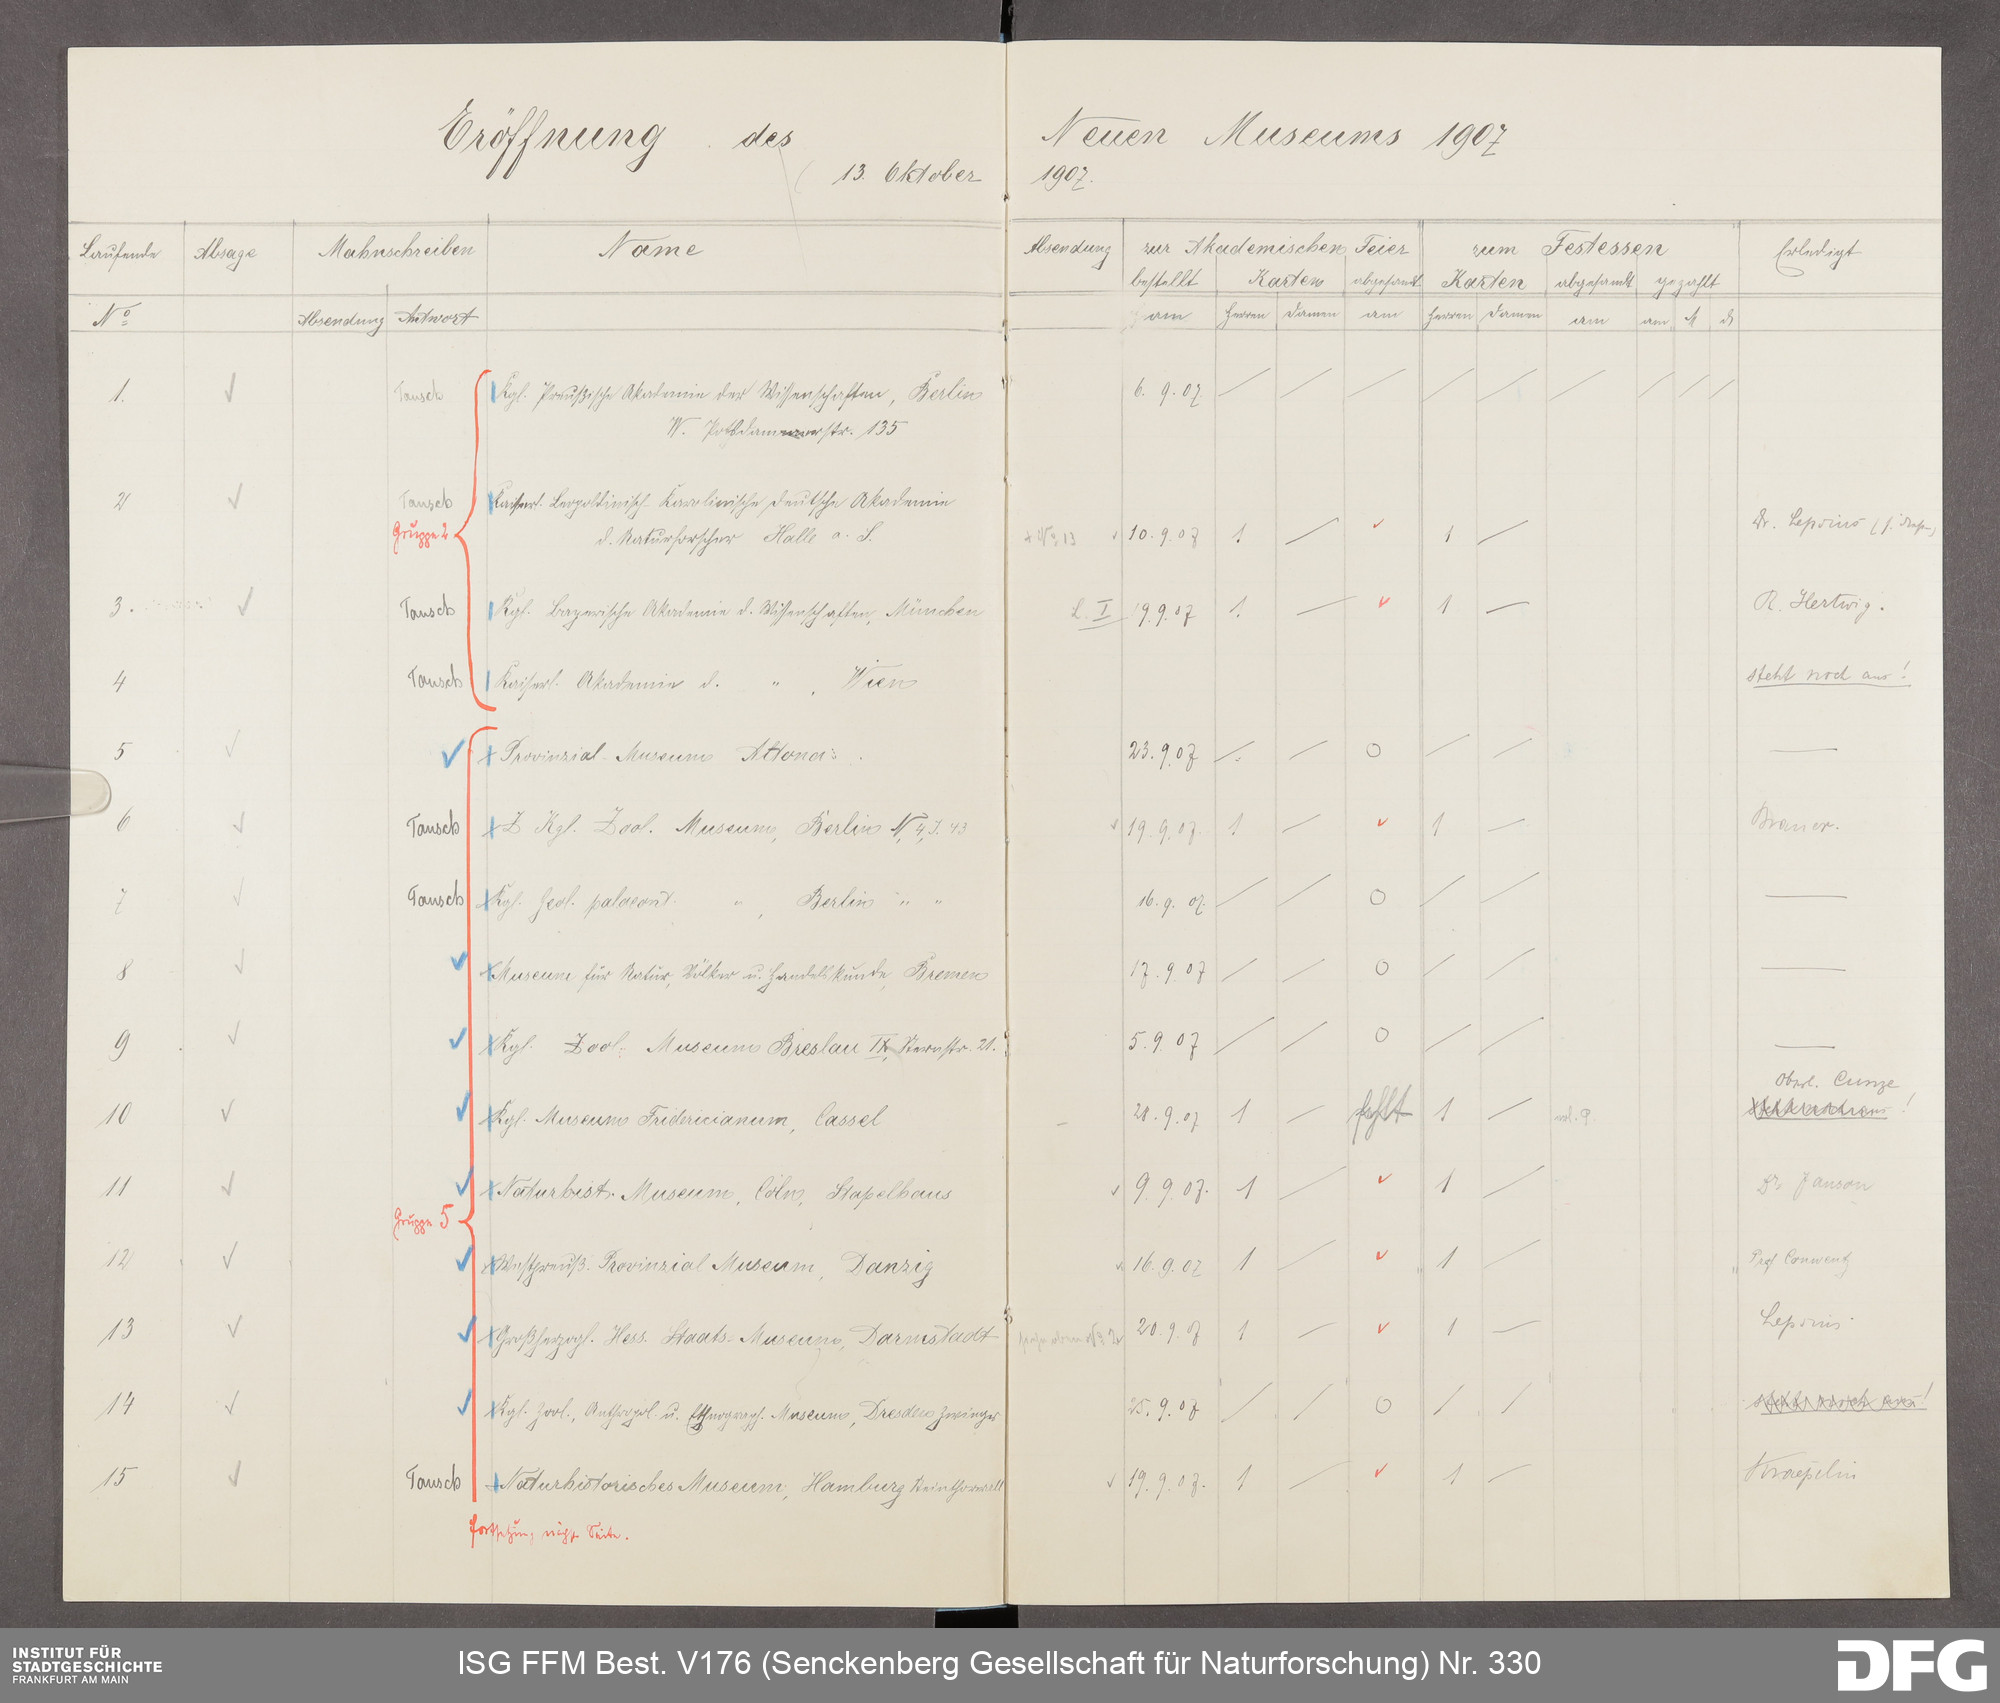 Eröffnung des Neuen Museums 1907
13. Oktober 1907.
Laufende Absage Mahnschreiben Name Absendung zur Akademischen Feier zum Festessen Erledigt
bestellt Karten abgesandt Karten abgesandt gezahlt
No Absendung Antwort am Herren Damen am Herren Damen am am M ₰
1. Tausch Kgl. Preußische Akademie der Wissenschaften, Berlin 6. 9. 07
W. Potsdamerstr. 135
2 Tausch Kaiserl. Leopoldinisch Karolinische deutsche Akademie
Gruppe 2 d. Naturforscher Halle a. S. No 13 10. 9. 07 1 1 Dr. Lepsius
3. Tausch Kgl. Bayerische Akademie d. Wissenschaften, München L. I 19. 9. 07 1 1 R. Hertwig.
4 Tausch Kaiserl. Akademie d. " , Wien steht noch aus!
5 Provinzial Museum Altona 23. 9. 07
6 Tausch Kgl. Zool. Museum, Berlin N. 4, J. 43 19. 9. 07. 1 1 Brauer.
7 Tausch Kgl. Geol. palaeont. " , Berlin " " 16. 9. 07.
8 Museum für Natur, Völker u. Handelskunde, Bremen 17. 9. 07
9 Kgl. Zool. Museum Breslau IX, Sternstr. 21. 5. 9. 07
Oberl. Cunze
10 Kgl. Museum Fridericianum, Cassel 21. 9. 07 1 fehlt 1
11 Naturhist. Museum, Cöln, Stapelhaus 9. 9. 07. 1 1 Dr. Janson
Gruppe 5
12 Westpreuß. Provinzial Museum, Danzig 16. 9. 07 1 1 Prof Conwentz
13 Großherzogl. Hess. Staats-Museum, Darmstadt 20. 9. 07 1 1 Lepsius
14 Kgl. Zool., Anthropol. u. Ethnograph. Museum, Dresden Zwinger 25. 9. 07 steht noch aus!
15 Tausch Naturhistorisches Museum, Hamburg Steinthorwall 19. 9. 07. 1 1 Kraepelin
Fortsetzung nächst. Seite.
INSTITUT FÜR
STADTGESCHICHTE
FRANKFURT AM MAIN
ISG FFM Best. V176 (Senckenberg Gesellschaft für Naturforschung) Nr. 330
DFG